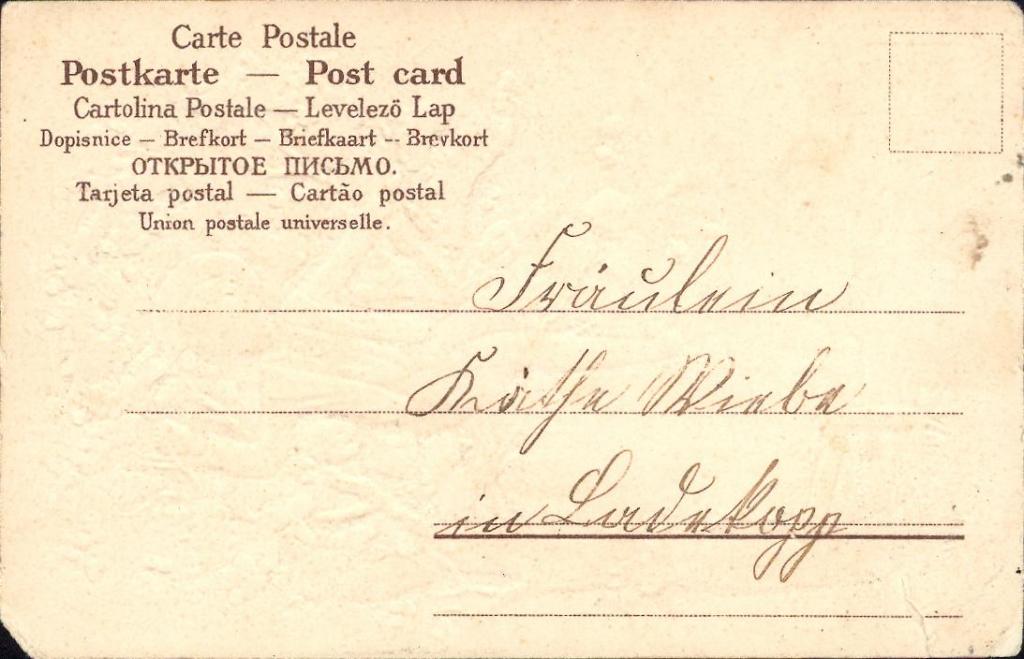 Carte Postale
Postkarte — Post card
Cartolina Postale — Levelező Lap
Dopisnice — Brefkort — Briefkaart -- Brevkort
ОТКРЫТОЕ ПИСЬМО.
Tarjeta postal — Cartão postal
Union postale universelle.
Fräulein
Käthe Wiebe
in Ladekopp